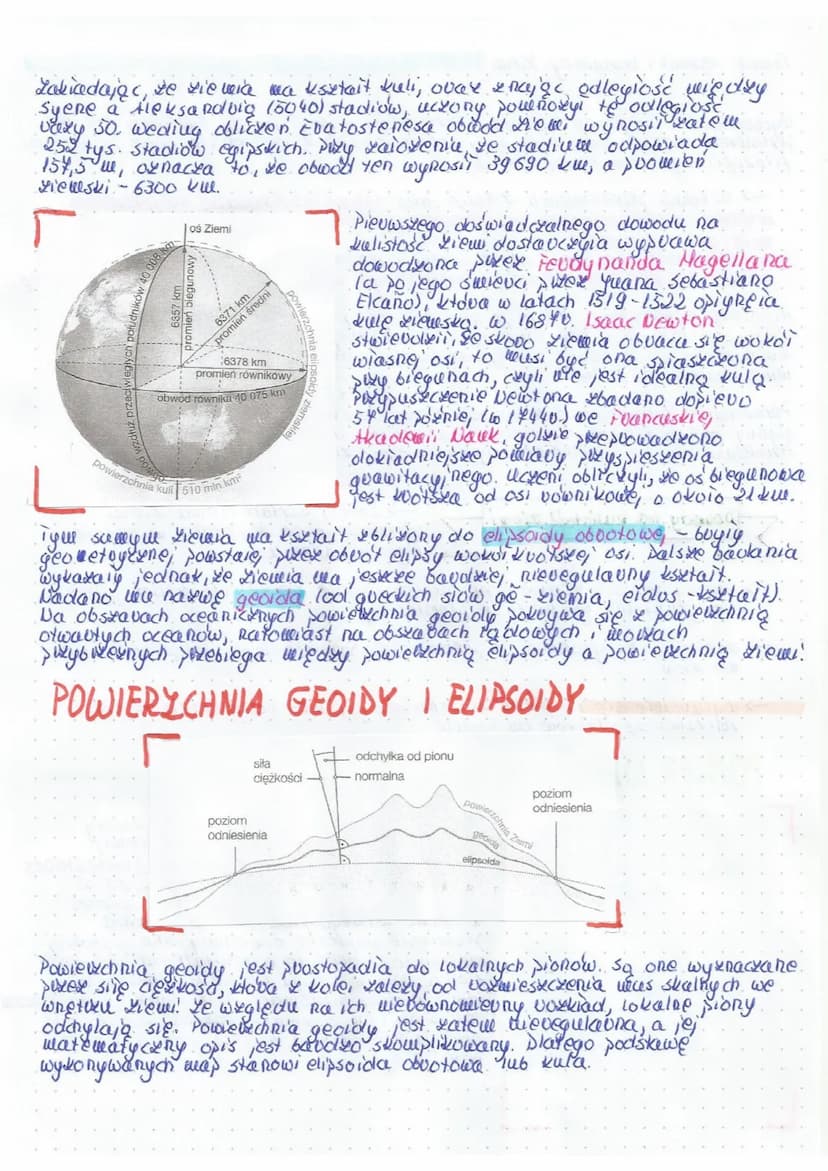 Zakładając, że Ziemia ma kształt kuli, oraz znając odległość między
Syene a Aleksandrią (5040) stadiów, uczony pomnożył tę odległość
razy 50. według obliczeń Eratostenesa obwód Ziemi wynosił zatem
252 tys. stadiów egipskich. przy założeniu, że stadium odpowiada
157,5 m, oznacza to, że obwód ten wynosił 39 690 km, a promień
ziemski - 6300 km.
oś Ziemi
wzdłuż przeciwległych południków 40 008 km
6357 km
promień biegunowy
6371 km
promień średni
6378 km
promień równikowy
obwód równika 40 075 km
powierzchnia elipsoidy ziemskiej
powierzchnia kuli 510 mln km²
Pierwszego doświadczalnego dowodu na
kulistość Ziemi dostarczyła wyprawa
dowodzona przez Ferdynanda Magellana
(a po jego śmierci przez Juana Sebastiano
Elcano), która w latach 1519-1522 opłynęła
kulę ziemską. w 1687r. Isaac Newton
stwierdził, że skoro Ziemia obraca się wokół
własnej osi, to musi być ona spłaszczona
przy biegunach, czyli nie jest idealną kulą.
Przypuszczenie Newtona zbadano dopiero
57 lat później (w 1744r.) we Francuskiej
Akademii Nauk, gdzie przeprowadzono
dokładniejsze pomiary przyspieszenia
grawitacyjnego. Uczeni obliczyli, że oś biegunowa
jest krótsza od osi równikowej o około 21 km.
Tym samym Ziemia ma kształt zbliżony do elipsoidy obrotowej - bryły
geometrycznej powstałej przez obrót elipsy wokół krótszej osi. Dalsze badania
wykazały jednak, że Ziemia ma jeszcze bardziej nieregularny kształt.
Nadano mu nazwę geoida (od greckich słów gē - ziemia, eidos - kształt).
Na obszarach oceanicznych powierzchnia geoidy pokrywa się z powierzchnią
otwartych oceanów, natomiast na obszarach lądowych i morzach
przybrzeżnych przebiega między powierzchnią elipsoidy a powierzchnią Ziemi!
POWIERZCHNIA GEOIDY I ELIPSOIDY
siła
ciężkości
odchyłka od pionu
normalna
poziom
odniesienia
poziom
odniesienia
powierzchnia Ziemi
geoida
elipsoida
Powierzchnia geoidy jest prostopadła do lokalnych pionów. Są one wyznaczane
przez siłę ciężkości, która z kolei zależy od rozmieszczenia mas skalnych we
wnętrzu Ziemi! Ze względu na ich nierównomierny rozkład, lokalne piony
odchylają się. Powierzchnia geoidy jest zatem nieregularna, a jej
matematyczny opis jest bardzo skomplikowany. Dlatego podstawę
wykonywanych map stanowi elipsoida obrotowa lub kula.